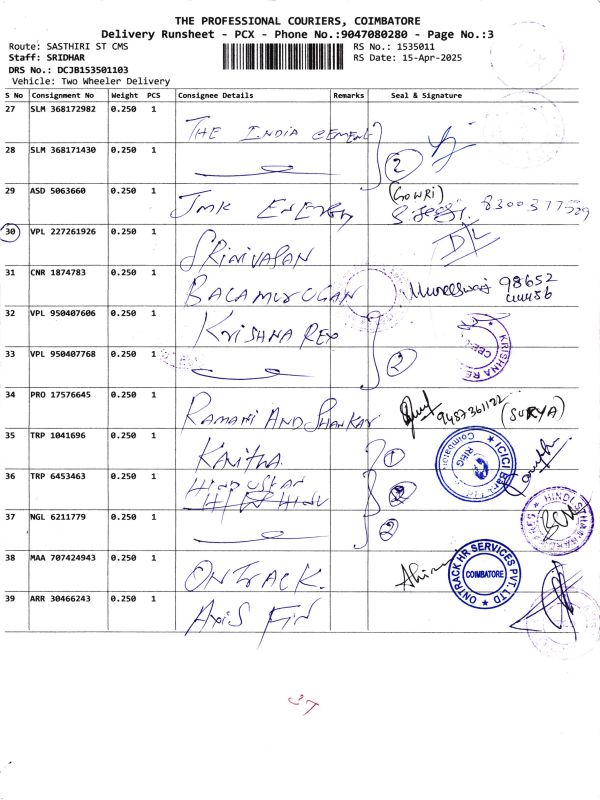 THE PROFESSIONAL COURIERS, COIMBATORE
Delivery Runsheet - PCX - Phone No.:9047080280 - Page No.:3
Route: SASTHIRI ST CMS RS No.: 1535011
Staff: SRIDHAR RS Date: 15-Apr-2025
DRS No.: DCJB153501103
Vehicle: Two Wheeler Delivery
S No Consignment No Weight PCS Consignee Details Remarks Seal & Signature
27 SLM 368172982 0.250 1 THE INDIA CEMENT
28 SLM 368171430 0.250 1 2
29 ASD 5063660 0.250 1 JMK ENERGY (GOWRI) 8300377529
30 VPL 227261926 0.250 1 SRINIVASAN
31 CNR 1874783 0.250 1 BALAMURUGAN 98652
32 VPL 950407606 0.250 1 KRISHNA REX KRISHNA RE
33 VPL 950407768 0.250 1 2
34 PRO 17576645 0.250 1 RAMANI AND SHANKAR 9487361122 (SURYA)
35 TRP 1041696 0.250 1 KAVITHA 1 ICICI Bank Coimbatore
36 TRP 6453463 0.250 1 HINDUSTAN
37 NGL 6211779 0.250 1 2
38 MAA 707424943 0.250 1 ONTRACK ONTRACK HR SERVICES PVT. LTD COIMBATORE
39 ARR 30466243 0.250 1 AXIS FIN